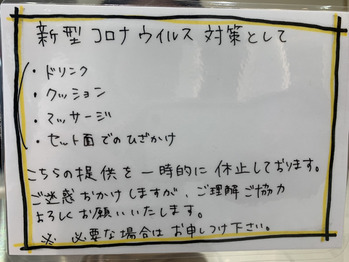 新型コロナウイルス対策として
・ドリンク
・クッション
・マッサージ
・セット面でのひざかけ
こちらの提供を一時的に休止しております。
ご迷惑おかけしますが、ご理解ご協力
よろしくお願いいたします。
※ 必要な場合はお申しつけ下さい。